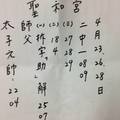 聖和宮
4月23.26.28日
二中
08
09
拆字「助」解
25
07
師父
太子元師
22
04